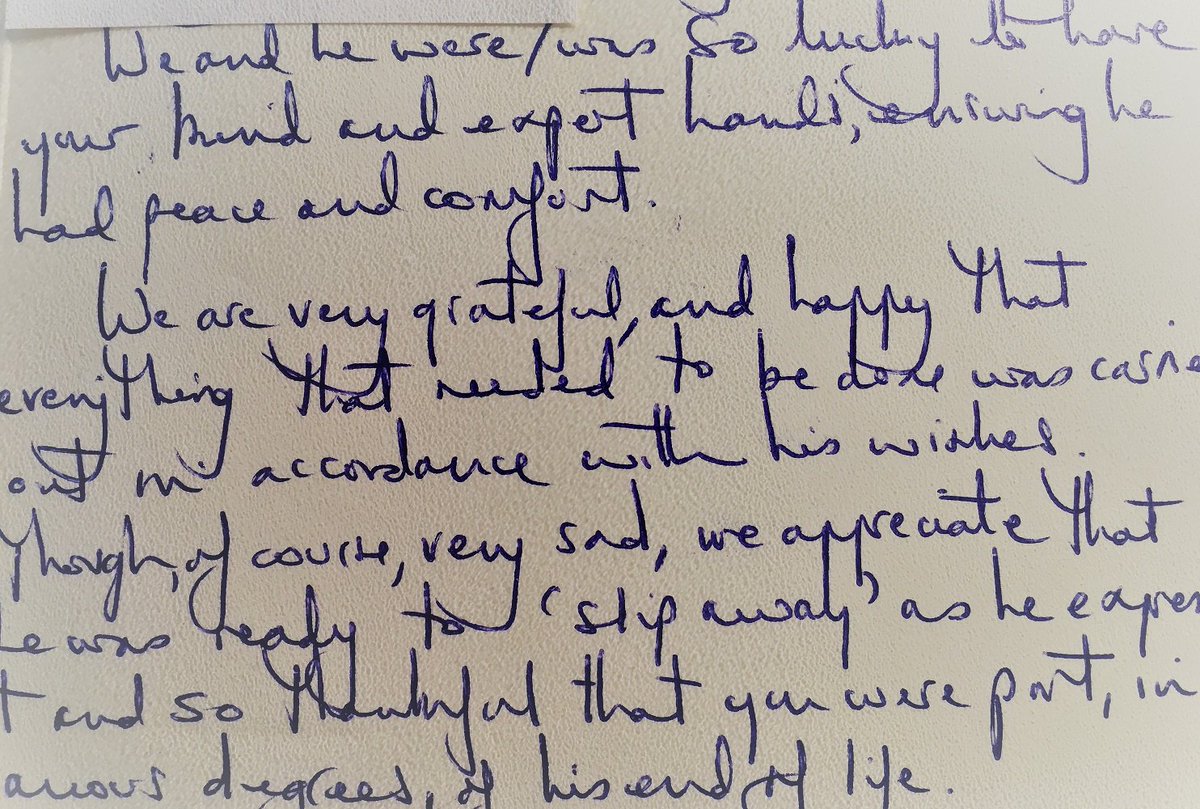 We and he were/was so lucky to have
your kind and expert hands, ensuring he
had peace and comfort.
We are very grateful, and happy that
everything that needed to be done was carrie
out in accordance with his wishes.
Though, of course, very sad, we appreciate that
he was ready to 'slip away' as he expres
t and so thankful that you were part, in
arious degrees, of his end of life.